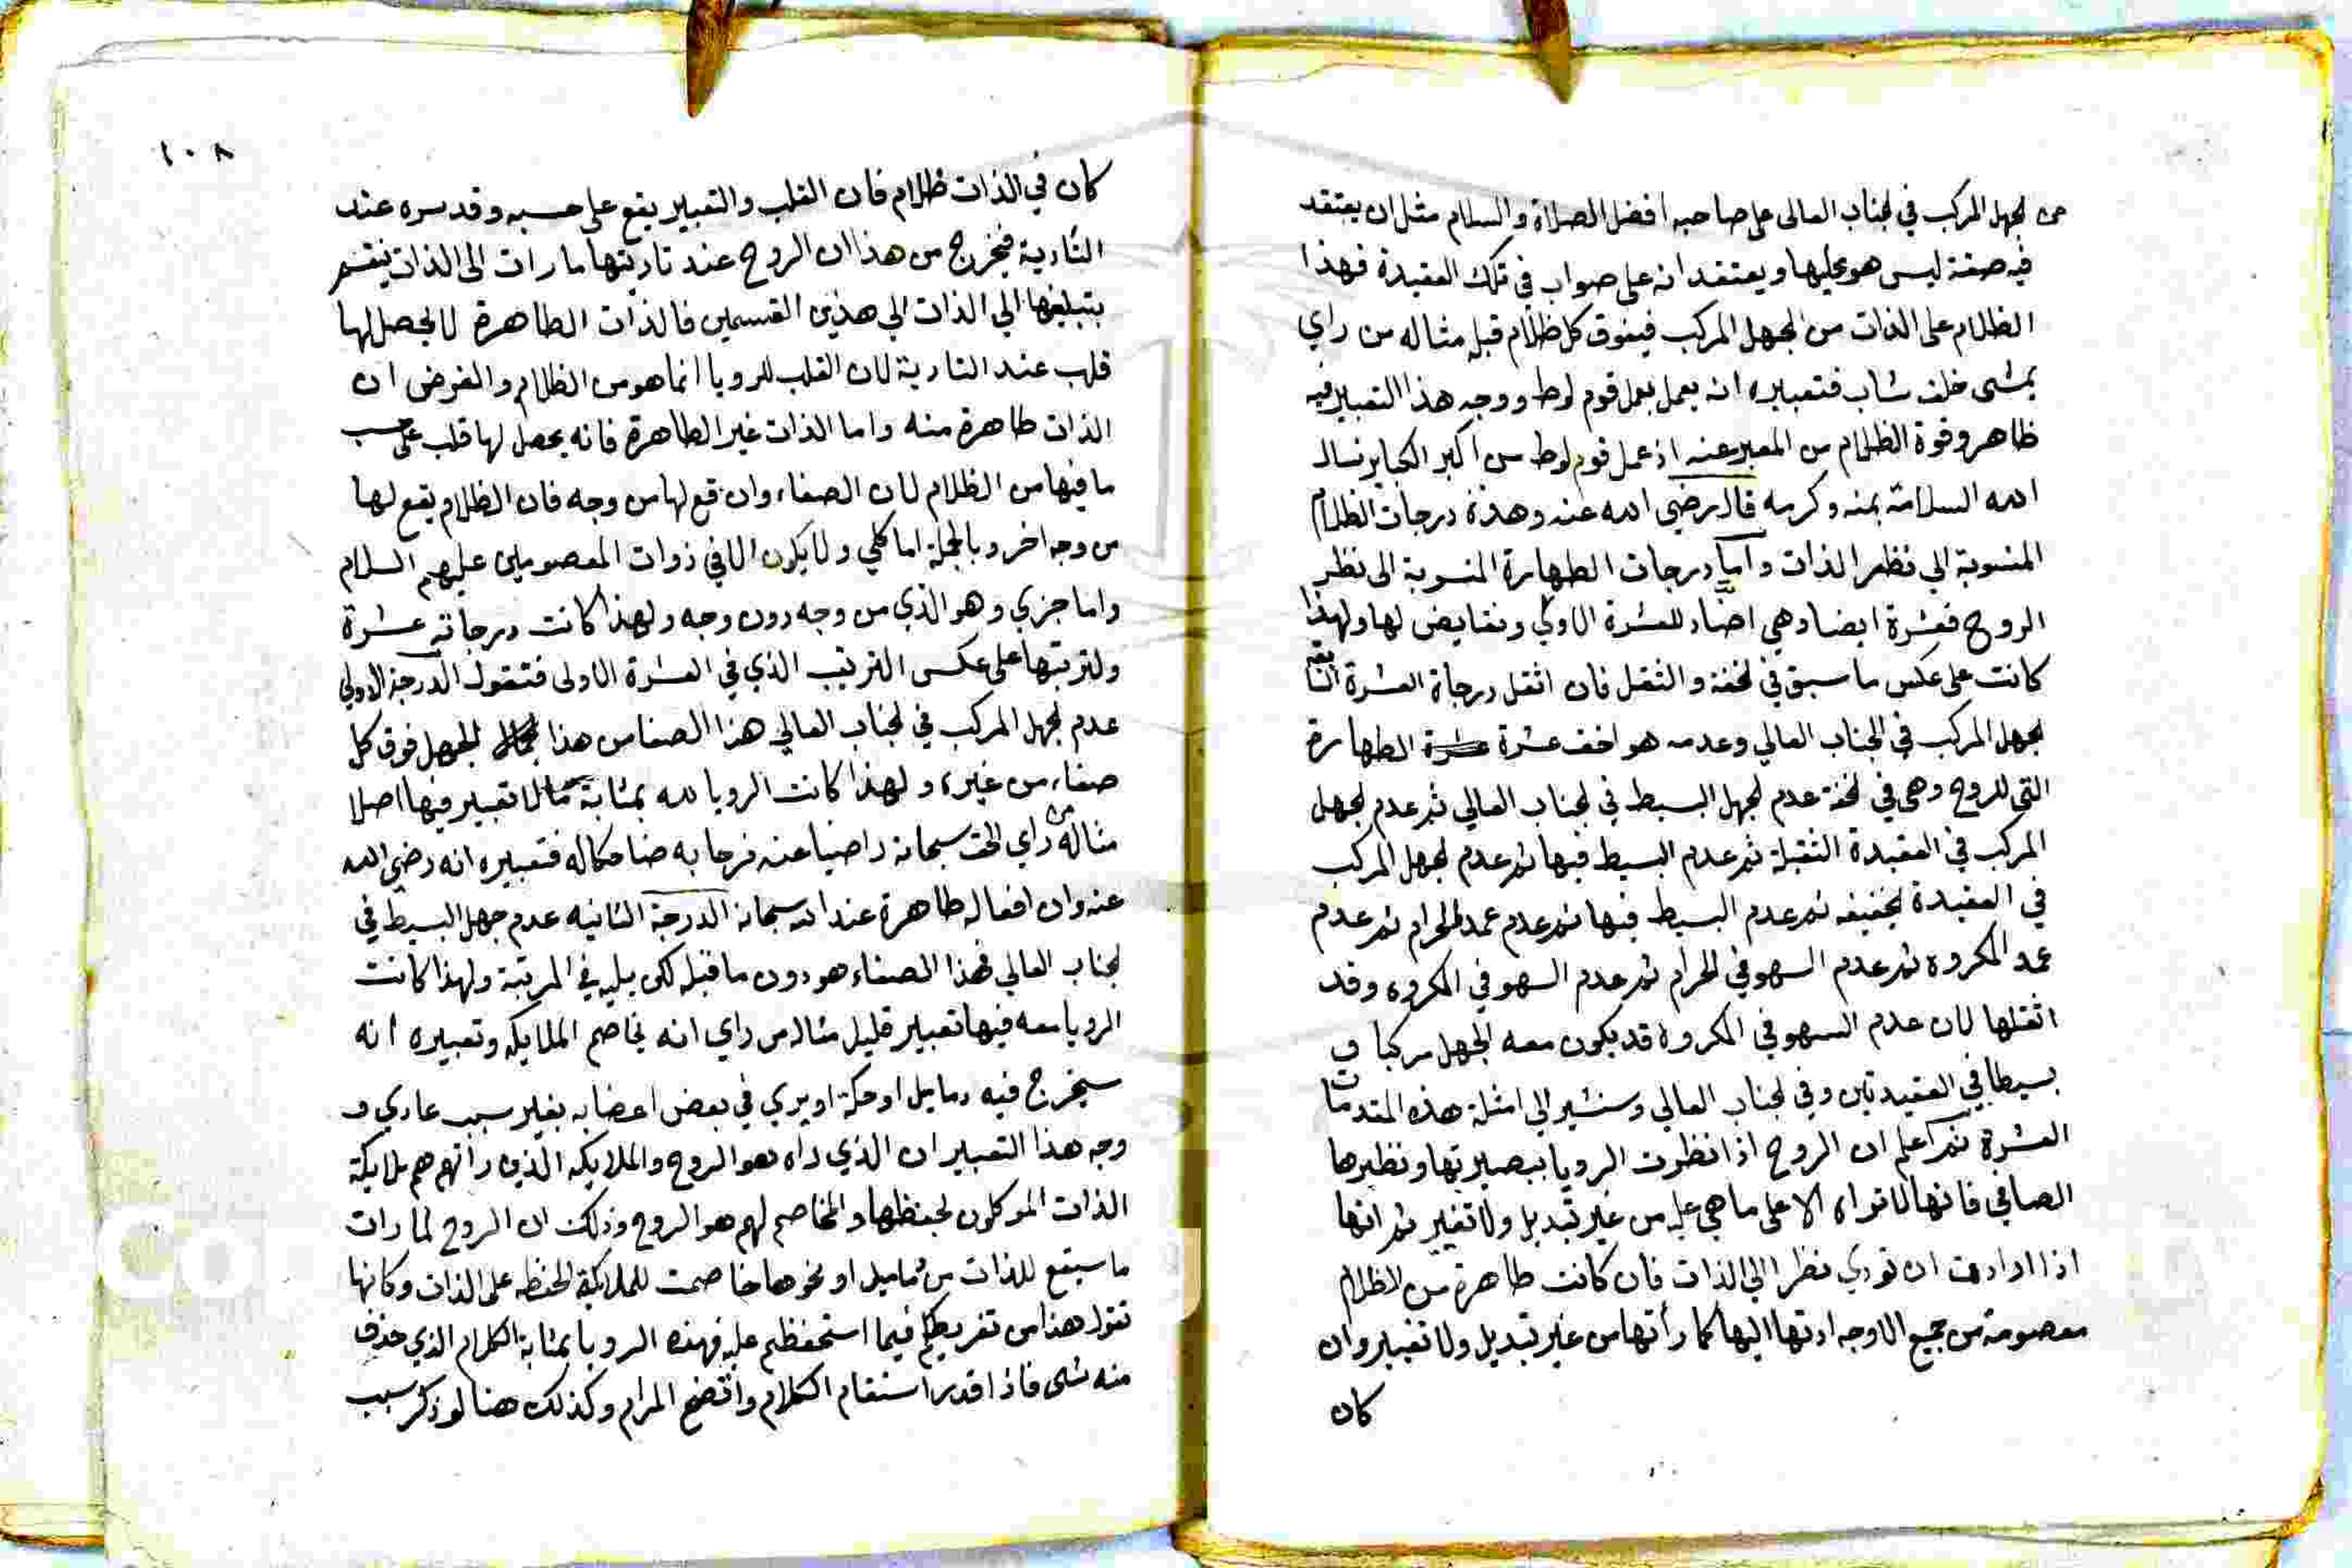 من الجهل المركب في الجناب العالى على صاحبه افضل الصلاة والسلام مثل ان يعتقد
فيه صفة ليس هو عليها ويعتقد انه على صواب في تلك العقيدة فهذا
الظلام على الذات من الجهل المركب فيفوق كل ظلام قبله مثاله من راي
يمشى خلف شاب فتعبيره انه يعمل بعمل قوم لوط ووجه هذا التعبير فيه
ظاهر وقوة الظلام من المعبر عنه اذ عمل قوم لوط من اكبر الكباير نسال
الله السلامة بمنه وكرمه قال رضي الله عنه وهذه درجات الظلام
المنسوبة الي نظر الذات واما درجات الطهارة المنسوبة الى نظر
الروح فعشرة ايضا وهي اضداد للعشرة الاولي ونقايض لها ولهذا
كانت على عكس ما سبق في الخفة والثقل فان اثقل درجاة العشرة
الجهل المركب في الجناب العالي وعدمه هو اخف عشرة الطهارة
التي للروح وهي في الخفة عدم الجهل البسيط في الجناب العالي ثم عدم الجهل
المركب في العقيدة الثقيلة ثم عدم البسيط فيها ثم عدم الجهل المركب
في العقيدة الخفيفه ثم عدم البسيط فيها ثم عدم عمد الحرام ثم عدم
عمد المكروه ثم عدم السهو في الحرام ثم عدم السهو في المكروه وقد
اثقلها لان عدم السهو في المكروه قد يكون معه الجهل مركبا و
بسيطا في العقيدتين وفي الجناب العالي وسنشير الي امثلة هذه المقدمات
العشرة ثم اعلم ان الروح اذا نظرت الرويا ببصيرتها ونظرها
الصافي فانها لا تراه الا على ما هي عليه من غير تبديل ولا تغيير ثم انها
اذا ارادت ان تودي نظرا الي الذات فان كانت طاهرة من الظلام
معصومة من جميع الاوجه ادتها اليها كما رأتها من غير تبديل ولا تغيير وان
كان
١٠٨
كان في الذات ظلام فان القلب والتعبير يقع على حسبه وقد سره عند
التادية فيخرج من هذا ان الروح عند تاديتها ما رات الى الذات ينقسم
بتبليغها الي الذات الي هذين القسمين فالذات الطاهرة لا يحصل لها
قلب عند التادية لان القلب للرويا انما هو من الظلام والفرض ان
الذات طاهرة منه واما الذات غير الطاهرة فانه يحصل لها قلب على حسب
ما فيها من الظلام لان الصفاء وان وقع لها من وجه فان الظلام يقع لها
من وجه اخر وبالجملة اما كلي ولا يكون الا في ذوات المعصومين عليهم السلام
واما جزي وهو الذي من وجه دون وجه ولهذا كانت درجاته عشرة
ولنرتبها على عكس الترتيب الذي في العشرة الاولى فنقول الدرجة الاولي
عدم الجهل المركب في الجناب العالي هذا الصفا من هذا الجهل فوق كل
صفاء من غيره ولهذا كانت الرويا له بمثابة ما لا تعبير فيها اصلا
مثاله من راي الحق سبحانه راضيا عنه فرحا به ضاحكا له فتعبيره انه رضي الله
عنه وان افعاله طاهرة عند الله سبحانه الدرجة الثانيه عدم جهل البسيط في
الجناب العالي فهذا الصفاء هو دون ما قبله لكن يليه في المرتبة ولهذا كانت
الرويا معه فيها تعبير قليل مثاله من راي انه يخاصم الملايكه وتعبيره انه
سيخرج فيه دمايل او حكة او يري في بعض اعضايه بغير سبب عادي و
وجه هذا التعبير ان الذي راه هو الروح والملايكه الذين راتهم هم ملايكة
الذات الموكلون بحفظها والمخاصم لهم هو الروح وذلك ان الروح لما رات
ما سيقع للذات من دمايل او نحوها خاصمت للملايكة الحفظه على الذات وكانها
تقول هذا من تفريطكم فيما استحفظتم عليه فهذه الرويا بمثابة الكلام الذي حذف
منه شي فاذا قدر استقام الكلام واتضح المرام وكذلك هنا لو ذكر سبب